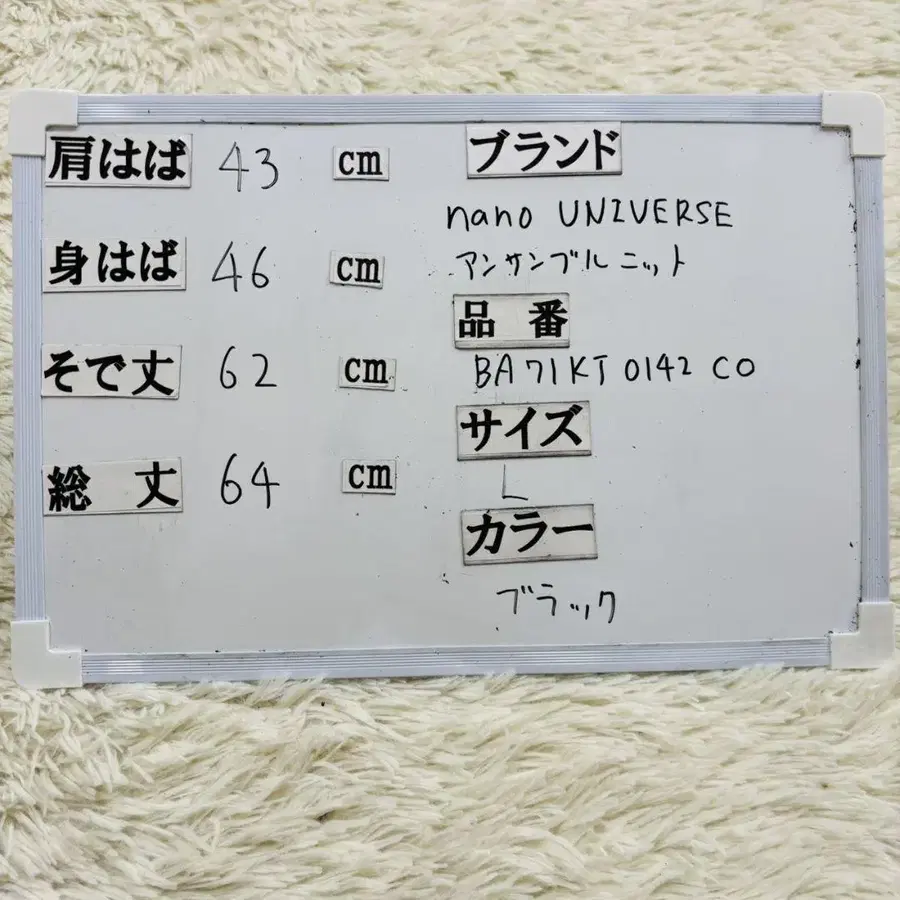 肩はば 43 cm
身はば 46 cm
そで丈 62 cm
総丈 64 cm
ブランド
nano UNIVERSE
アンサンブルニット
品番
BA71KT0142 CO
サイズ
L
カラー
ブラック